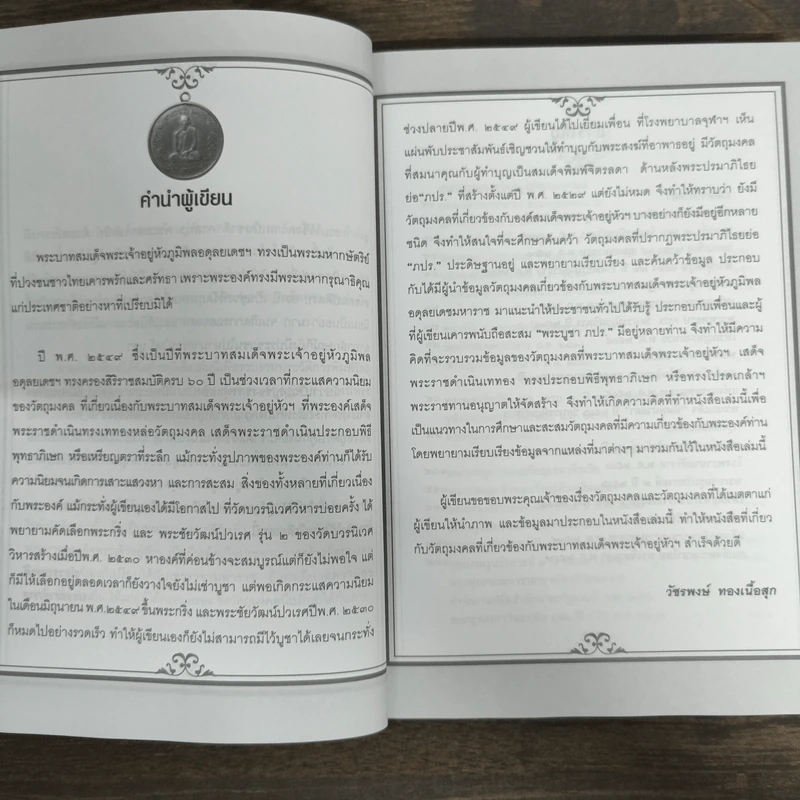 คำนำผู้เขียน
พระบาทสมเด็จพระเจ้าอยู่หัวภูมิพลอดุลยเดชฯ ทรงเป็นพระมหากษัตริย์
ที่ปวงชนชาวไทยเคารพรักและศรัทธา เพราะพระองค์ทรงมีพระมหากรุณาธิคุณ
แก่ประเทศชาติอย่างหาที่เปรียบมิได้
ปี พ.ศ. ๒๕๔๙ ซึ่งเป็นปีที่พระบาทสมเด็จพระเจ้าอยู่หัวภูมิพล
อดุลยเดชฯ ทรงครองสิริราชสมบัติครบ ๖๐ ปี เป็นช่วงเวลาที่กระแสความนิยม
ของวัตถุมงคล ที่เกี่ยวเนื่องกับพระบาทสมเด็จพระเจ้าอยู่หัวฯ ที่พระองค์เสด็จ
พระราชดำเนินทรงเททองหล่อวัตถุมงคล เสด็จพระราชดำเนินประกอบพิธี
พุทธาภิเษก หรือเหรียญตราที่ระลึก แม้กระทั่งรูปภาพของพระองค์ท่านก็ได้รับ
ความนิยมจนเกิดการเสาะแสวงหา และการสะสม สิ่งของทั้งหลายที่เกี่ยวเนื่อง
กับพระองค์ แม้กระทั่งผู้เขียนเองได้มีโอกาสไป ที่วัดบวรนิเวศวิหารบ่อยครั้ง ได้
พยายามคัดเลือกพระกริ่ง และ พระชัยวัฒน์ปวเรศ รุ่น ๒ ของวัดบวรนิเวศ
วิหารสร้างเมื่อปีพ.ศ. ๒๕๓๐ หาองค์ที่ค่อนข้างจะสมบูรณ์แต่ก็ยังไม่พอใจ แต่
ก็มีให้เลือกอยู่ตลอดเวลาก็ยังวางใจยังไม่เช่าบูชา แต่พอเกิดกระแสความนิยม
ในเดือนมิถุนายน พ.ศ.๒๕๔๙ ขึ้นพระกริ่ง และพระชัยวัฒน์ปวเรศปีพ.ศ. ๒๕๓๐
ก็หมดไปอย่างรวดเร็ว ทำให้ผู้เขียนเองก็ยังไม่สามารถมีไว้บูชาได้เลยจนกระทั่ง
ช่วงปลายปีพ.ศ. ๒๕๔๙ ผู้เขียนได้ไปเยี่ยมเพื่อน ที่โรงพยาบาลจุฬาฯ เห็น
แผ่นพับประชาสัมพันธ์เชิญชวนให้ทำบุญกับพระสงฆ์ที่อาพาธอยู่ มีวัตถุมงคล
ที่สมนาคุณกับผู้ทำบุญเป็นสมเด็จพิมพ์จิตรลดา ด้านหลังพระปรมาภิไธย
ย่อ“ภปร.” ที่สร้างตั้งแต่ปี พ.ศ. ๒๕๒๙ แต่ยังไม่หมด จึงทำให้ทราบว่า ยังมี
วัตถุมงคลที่เกี่ยวข้องกับองค์สมเด็จพระเจ้าอยู่หัวฯ บางอย่างก็ยังมีอยู่อีกหลาย
ชนิด จึงทำให้สนใจที่จะศึกษาค้นคว้า วัตถุมงคลที่ปรากฏพระปรมาภิไธยย่อ
“ภปร.” ประดิษฐานอยู่ และพยายามเรียบเรียง และค้นคว้าข้อมูล ประกอบ
กับได้มีผู้นำข้อมูลวัตถุมงคลเกี่ยวข้องกับพระบาทสมเด็จพระเจ้าอยู่หัวภูมิพล
อดุลยเดชมหาราช มาแนะนำให้ประชาชนทั่วไปได้รับรู้ ประกอบกับเพื่อนและผู้
ที่ผู้เขียนเคารพนับถือสะสม “พระบูชา ภปร.” มีอยู่หลายท่าน จึงทำให้มีความ
คิดที่จะรวบรวมข้อมูลของวัตถุมงคลที่พระบาทสมเด็จพระเจ้าอยู่หัวฯ เสด็จ
พระราชดำเนินเททอง ทรงประกอบพิธีพุทธาภิเษก หรือทรงโปรดเกล้าฯ
พระราชทานอนุญาตให้จัดสร้าง จึงทำให้เกิดความคิดที่ทำหนังสือเล่มนี้เพื่อ
เป็นแนวทางในการศึกษาและสะสมวัตถุมงคลที่มีความเกี่ยวข้องกับพระองค์ท่าน
โดยพยายามเรียบเรียงข้อมูลจากแหล่งที่มาต่างๆ มารวมกันไว้ในหนังสือเล่มนี้
ผู้เขียนขอขอบพระคุณเจ้าของเรื่องวัตถุมงคลและวัตถุมงคลที่ได้เมตตาแก่
ผู้เขียนให้นำภาพ และข้อมูลมาประกอบในหนังสือเล่มนี้ ทำให้หนังสือที่เกี่ยว
กับวัตถุมงคลที่เกี่ยวข้องกับพระบาทสมเด็จพระเจ้าอยู่หัวฯ สำเร็จด้วยดี
วัชรพงษ์ ทองเนื้อสุก